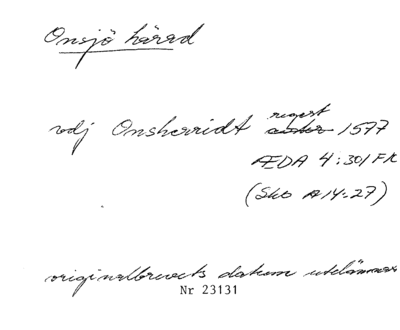 Onsjö härad
vdj Onsherridt regest 1577
ÆDA 4:301 FK
(Sko A14:27)
originalbrevets datum utelämnas
Nr 23131